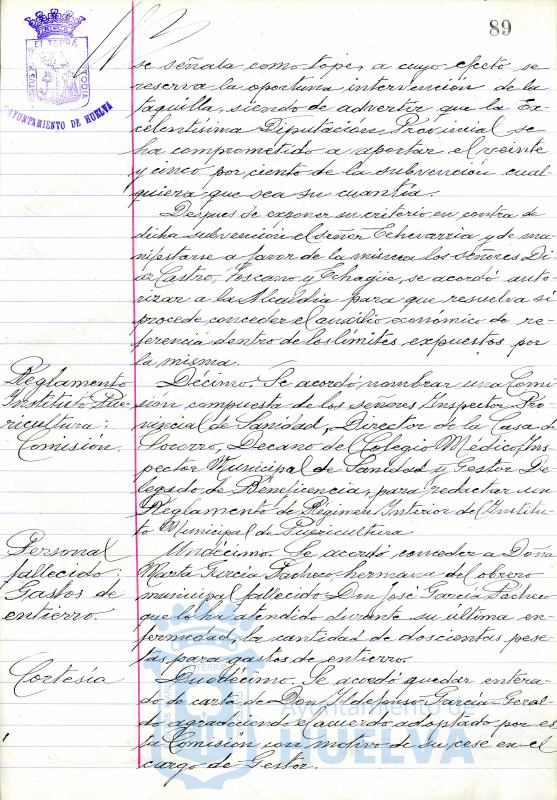 89
PORTUS MARIS ET TERRÆ CUSTODIA
AYUNTAMIENTO DE HUELVA
se señala como tope, a cuyo efecto se
reserva la oportuna intervención de la
taquilla, siendo de advertir que la Ex-
celentísima Diputación Provincial se
ha comprometido a aportar el veinte
y cinco por ciento de la subvención cual-
quiera que sea su cuantía.
Después de exponer su criterio en contra de
dicha subvención el señor Echevarria y de ma-
nifestarse a favor de la misma los señores Di-
az Castro, Lescano y Echagüe, se acordó auto-
rizar a la Alcaldía para que resuelva si
procede conceder el auxilio económico de re-
ferencia dentro de los límites expuestos por
la misma.
Reglamento
Instituto Pue-
ricultura:
Comisión.
Décimo. Se acordó nombrar una Comi-
sión compuesta de los señores Inspector Pro-
vincial de Sanidad, Director de la Casa de
Socorro, Decano del Colegio Médico, Ins-
pector Municipal de Sanidad y Gestor De-
legado de Beneficencia, para redactar un
Reglamento de Régimen Interior del Institu-
to Municipal de Puericultura
Personal
fallecido:
Gastos de
entierro.
Undécimo. Se acordó conceder a Doña
Marta García Pacheco hermana del obrero
municipal fallecido Don José García Pacheco
que lo ha atendido durante su última en-
fermedad, la cantidad de doscientas pese-
tas para gastos de entierro
Cortesía
Duodécimo. Se acordó quedar entera-
do de carta de Don Ildefonso García Geral-
do agradeciendo el acuerdo adoptado por es-
ta Comisión con motivo de su cese en el
cargo de Gestor.
Ayuntamiento de
HUELVA